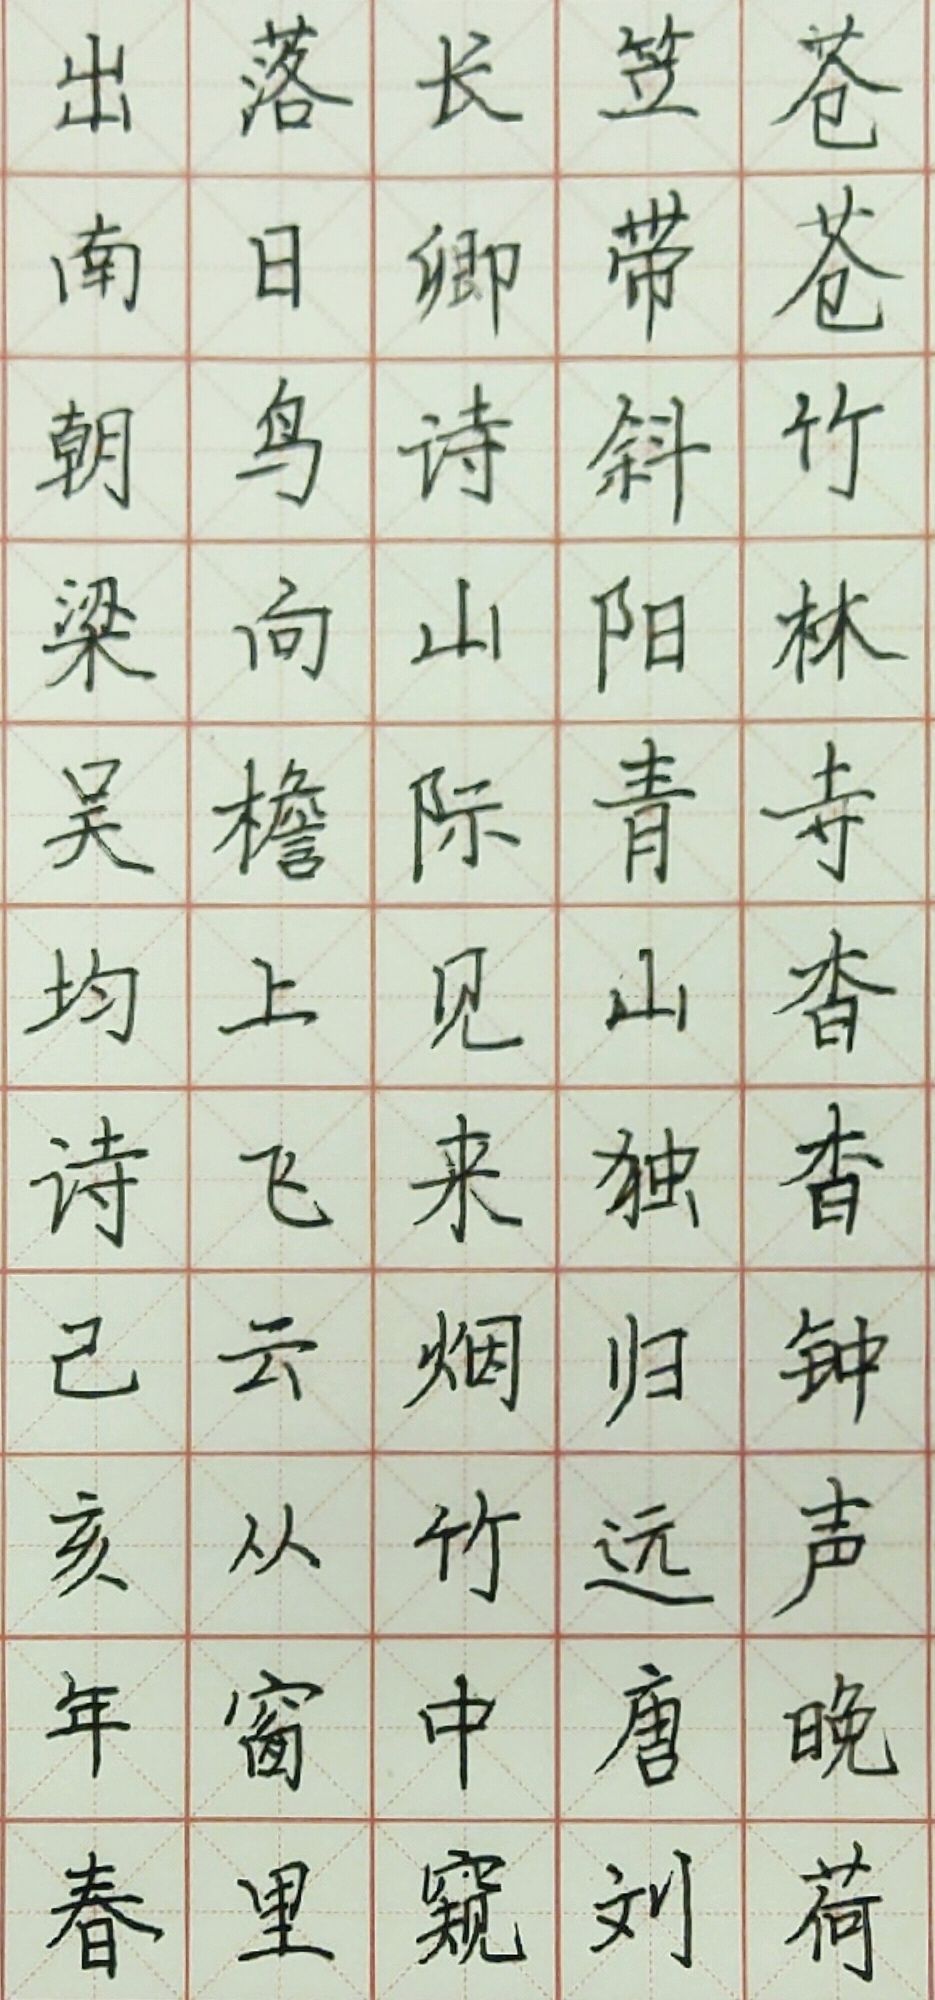 苍苍竹林寺杳杳钟声晚荷
笠带斜阳青山独归远唐刘
长卿诗山际见来烟竹中窥
落日鸟向檐上飞云从窗里
出南朝梁吴均诗己亥年春